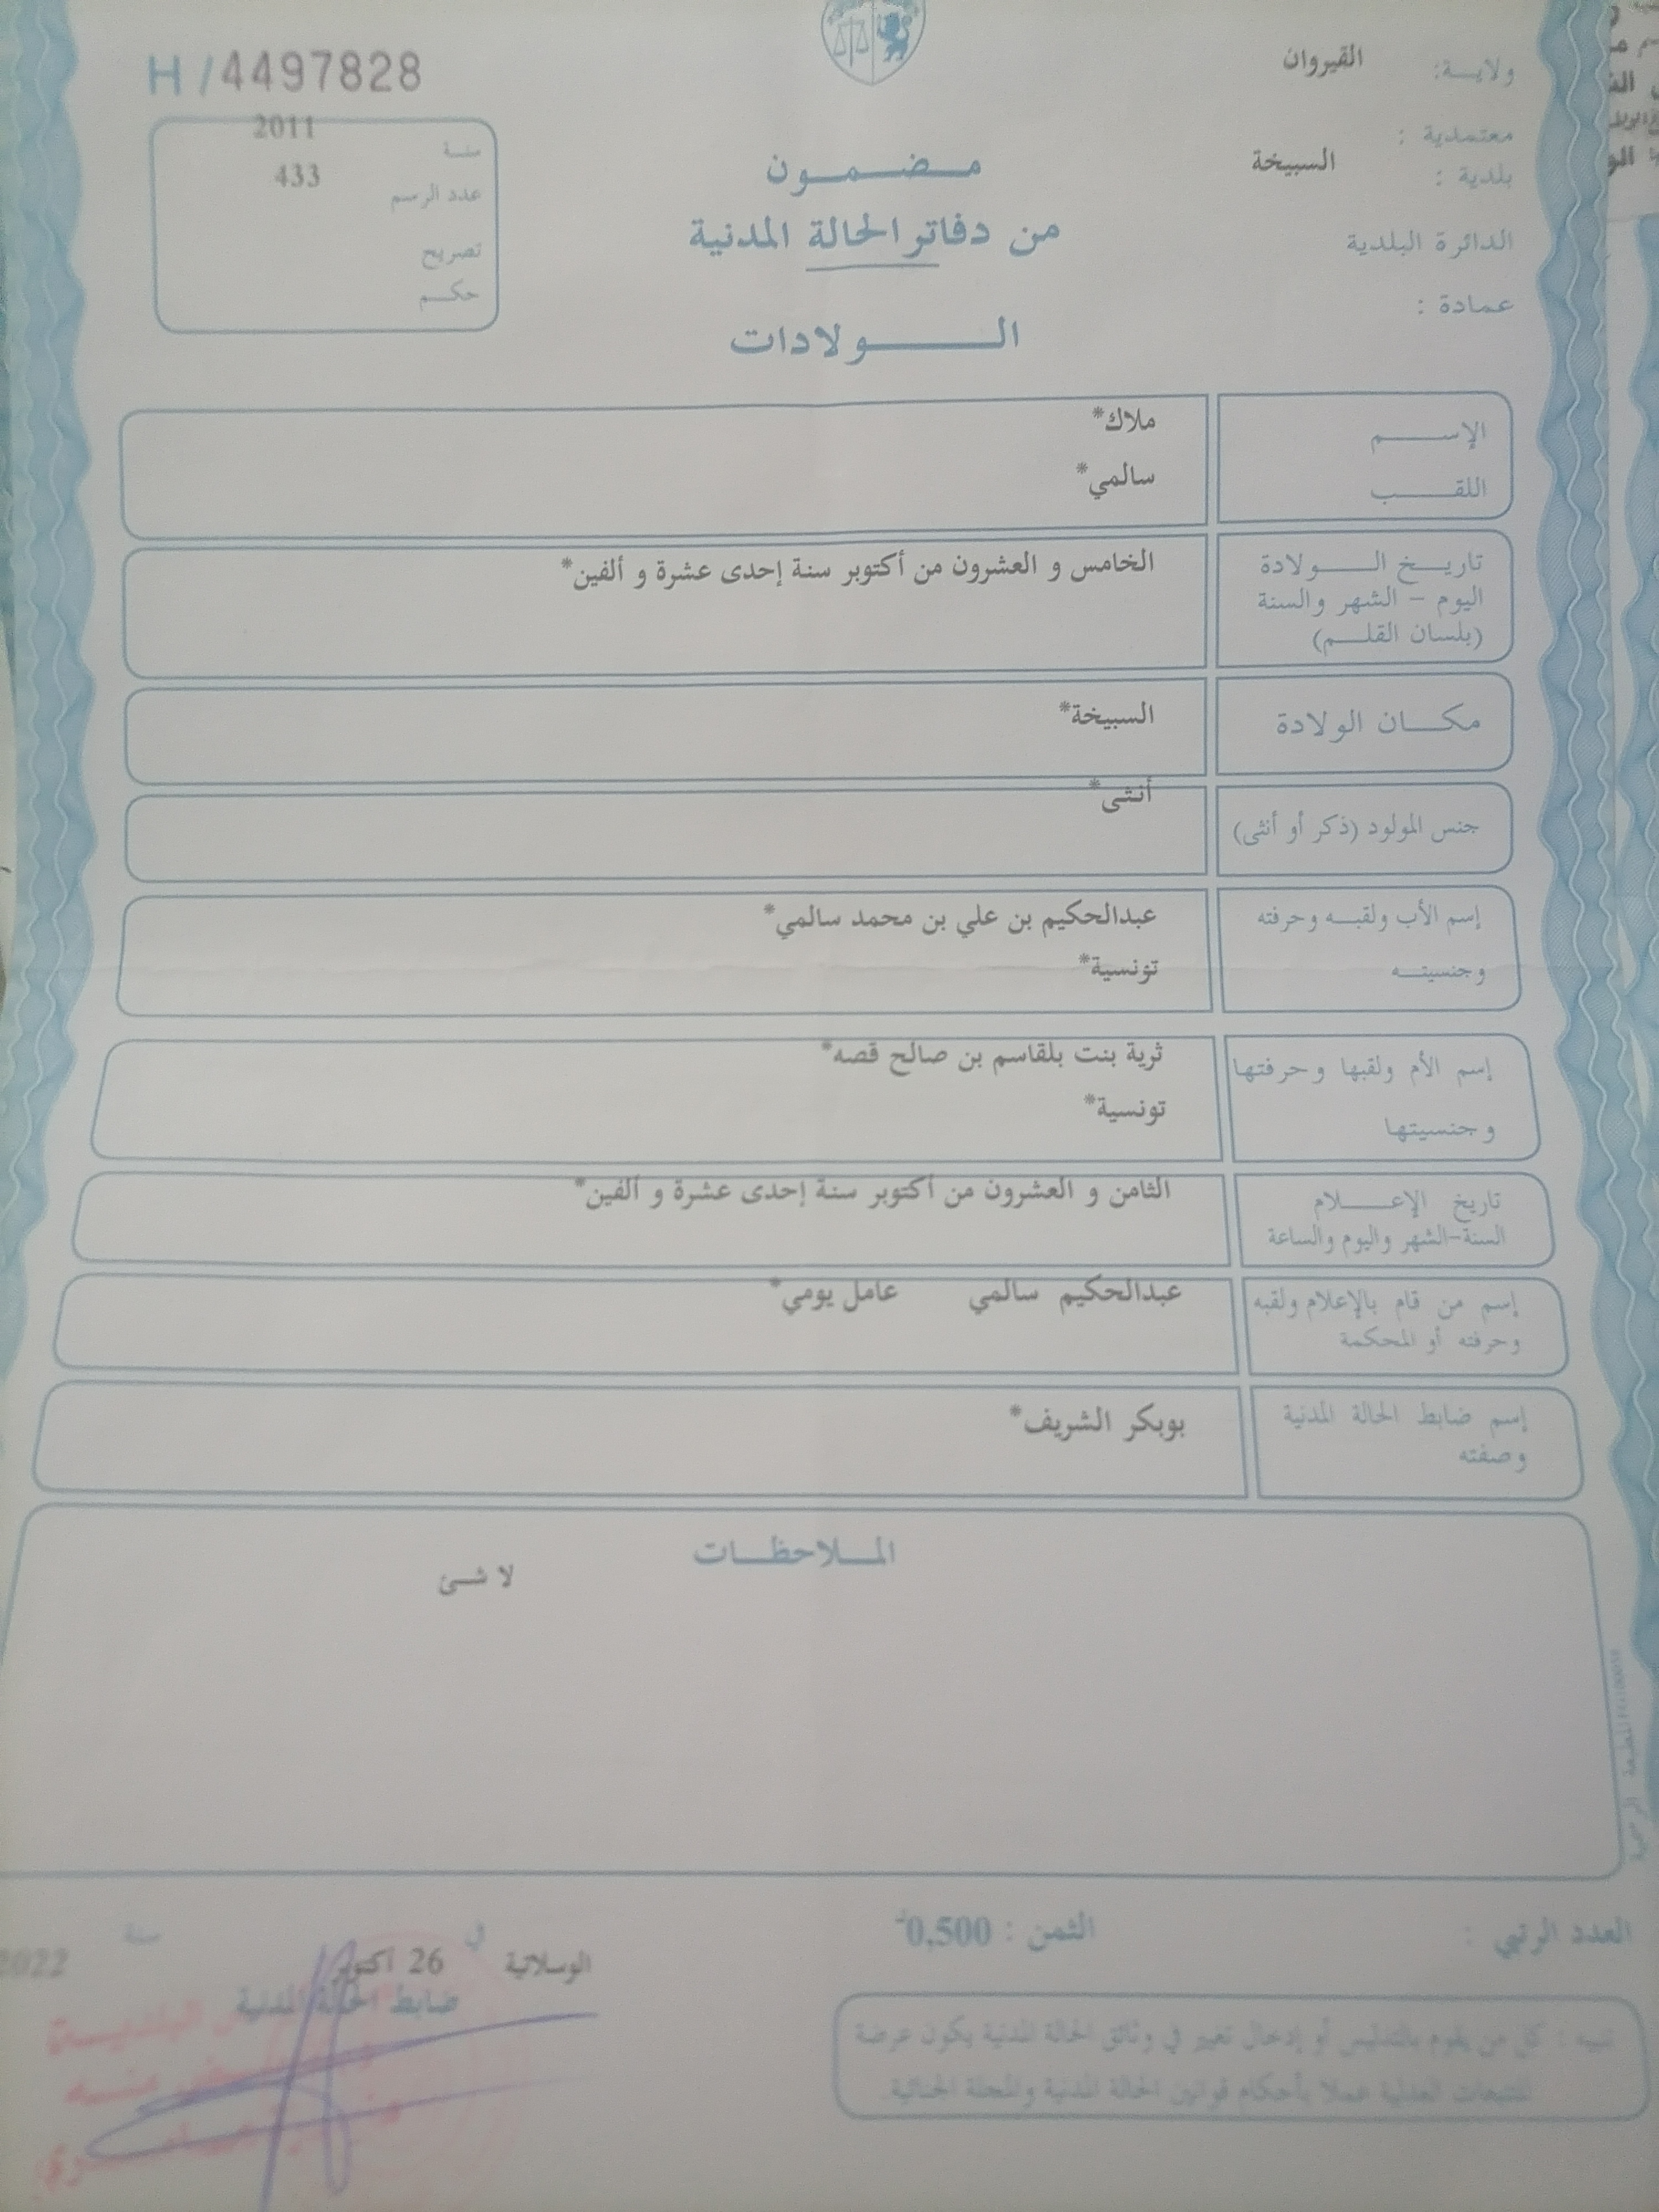 H / 4497828
ولاية: القيروان
معتمدية :
بلدية : السبيخة
الدائرة البلدية
عمادة :
2011
سنة
433
عدد الرسم
تصريح
حكم
مضمون
من دفاتر الحالة المدنية
الولادات
الإسم ملاك*
اللقب سالمي*
تاريخ الولادة الخامس و العشرون من أكتوبر سنة إحدى عشرة و ألفين*
اليوم – الشهر والسنة
(بلسان القلم)
مكان الولادة السبيخة*
جنس المولود (ذكر أو أنثى) أنثى*
إسم الأب ولقبه وحرفته عبدالحكيم بن علي بن محمد سالمي*
وجنسيته تونسية*
إسم الأم ولقبها وحرفتها ثرية بنت بلقاسم بن صالح قصه*
وجنسيتها تونسية*
تاريخ الإعلام الثامن و العشرون من أكتوبر سنة إحدى عشرة و ألفين*
السنة-الشهر واليوم والساعة
إسم من قام بالإعلام ولقبه عبدالحكيم سالمي عامل يومي*
وحرفته أو المحكمة
إسم ضابط الحالة المدنية بوبكر الشريف*
وصفته
الملاحظات
لا شئ
العدد الرتبي :
الثمن : 0,500
الوسلاتية في 26 أكتوبر سنة 2022
ضابط الحالة المدنية
تنبيه : كل من يقوم بالتدليس أو إدخال تغيير في وثائق الحالة المدنية يكون عرضة
للتتبعات العدلية عملا بأحكام قوانين الحالة المدنية والمجلة الجنائية.